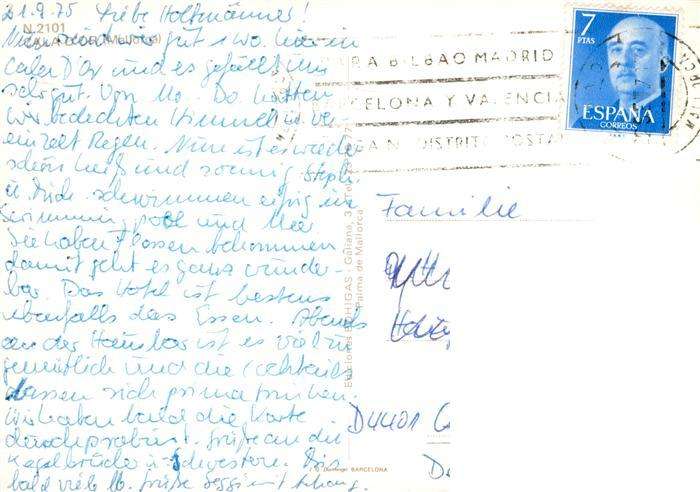 21.9.75 Liebe Holtmänners!
N. 2101
CALA D'OR (Mallorca)
Nun sind wir gut 1 Wo. hier in
Cala D'Or und es gefällt uns
sehr gut. Von Mo - Do hatten
wir bedeckten Himmel u. ver-
einzelt Regen. Nun ist es wieder
schön heiß und sonnig. Steph.
u. Dirk schwimmen eifrig im
Swimmingpool und Meer
Sie haben Flossen bekommen
damit geht es ganz wunder-
bar. Das Hotel ist bestens
ebenfalls das Essen. Abends
an der Hausbar ist es viel zu
gemütlich und die Cocktails
lassen sich prima trinken.
Wir haben bald die Karte
durchprobiert. Grüße an die
Kegelbrüder u. Schwestern. Bis
bald viele lb. Grüße mit Anhang.
PARA BILBAO MADRID
BARCELONA Y VALENCIA
DISTRITO POSTAL
7
PTAS
ESPAÑA
CORREOS
Familie
D4401
Ediciones BOHIGAS: Galiana, 3
Palma de Mallorca
BARCELONA